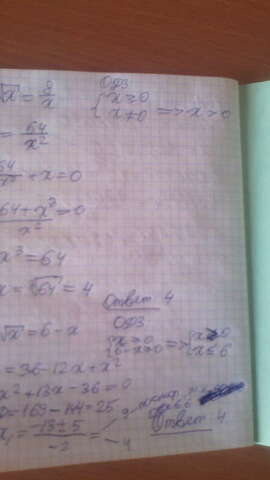 √x = 8/x ОДЗ
{ x ≥ 0
x ≠ 0 => x > 0
= 64/x²
64/x² + x = 0
64 + x³ / x² = 0
x³ = 64
x = ∛64 = 4
Ответ 4
√x = 6 - x ОДЗ
{ x ≥ 0
6 - x ≥ 0 => { x ≥ 0
x ≤ 6
= 36 - 12x + x²
x² + 13x - 36 = 0
D = 169 - 144 = 25
x₁ = -13 ± 5 / -2 = 9
4
Ответ: 4